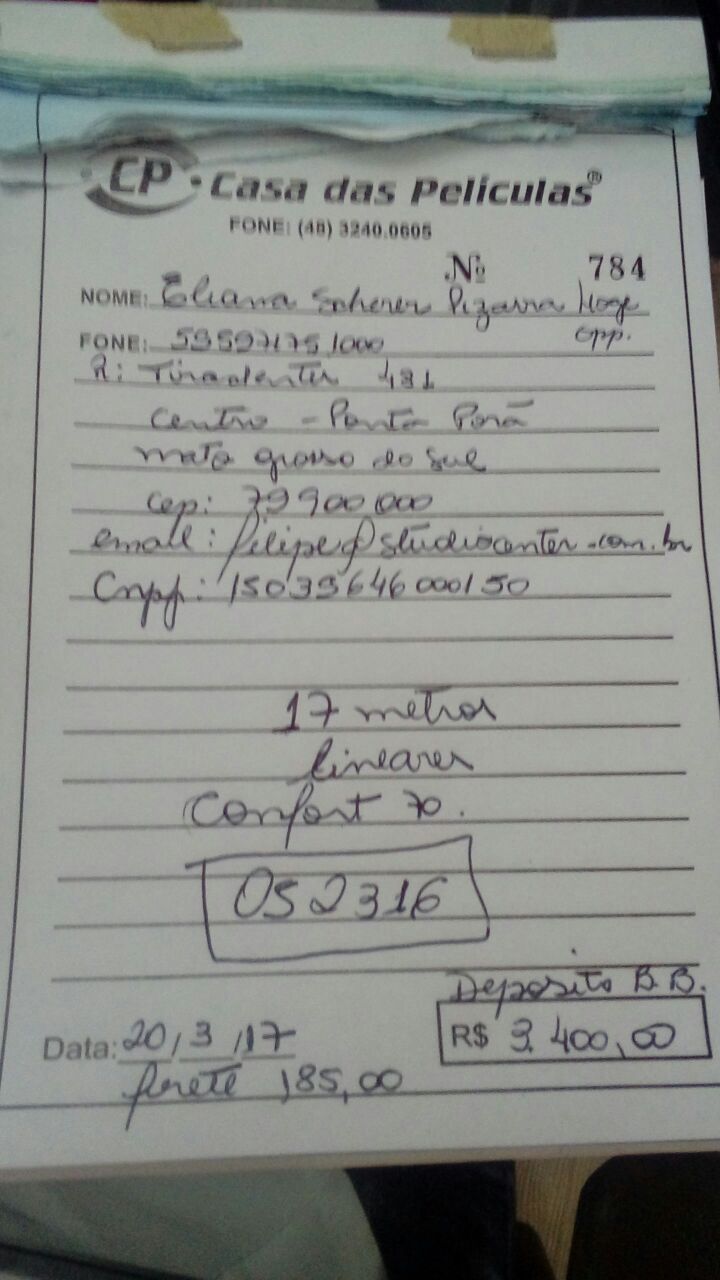 CP · Casa das Películas®
FONE: (48) 3240.0605
Nº 784
NOME: Eliana Scherer Pizarra
epp.
FONE: 59597175 1000
R: Tiradentes 481
Centro - Ponta Porã
mato grosso do sul
cep: 79900000
email: filipe@studiocenter.com.br
Cnpj: 15039646000150
17 metros
lineares
Confort 70.
052316
Deposito B.B.
R$ 3.400,00
Data: 20/3/17
frete 185,00